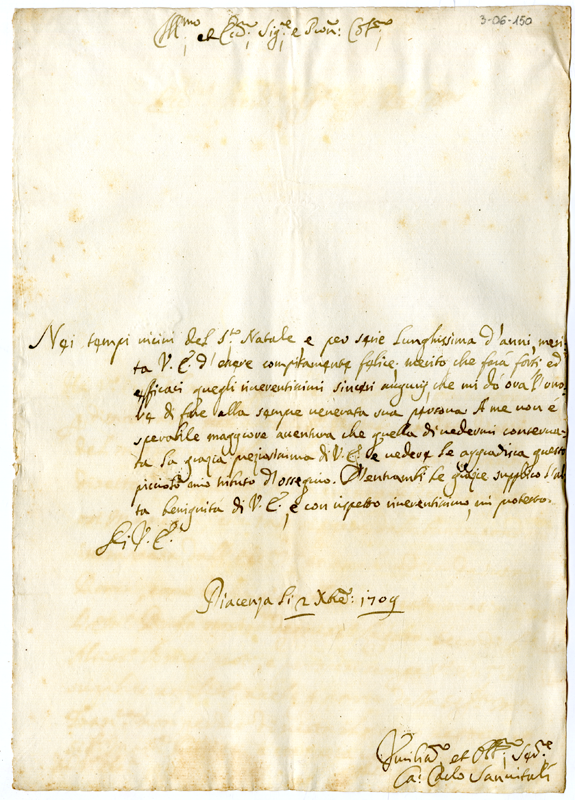 3-06-150
Ill.mo et Ecc.mo Sig.re e Pron: Col.mo
Nei tempi vicini del S.to Natale e per serie lunghissima d'anni, meri-
ta V. E. d'essere compitamente felice; merito che farà forti ed
efficaci quegli riverentissimi sinceri augurij, che mi dò ora l'ono-
re di fare alla sempre venerata sua persona. A me non è
sperabile maggiore aventura che quella di vedermi conserva-
ta la grazia preziosissima di V. E. e vedere se aggradisca questo
picciolo mio tributo d'ossequio. D' le grazie supplico l'al-
ta benignità di V. E., e con rispetto riverentissimo, mi protesto.
Di V. E.
Piacenza li 2 Xbre: 1709
Humiliss.mo et Obb.mo Ser.re
Ca: Carlo Sanvitali